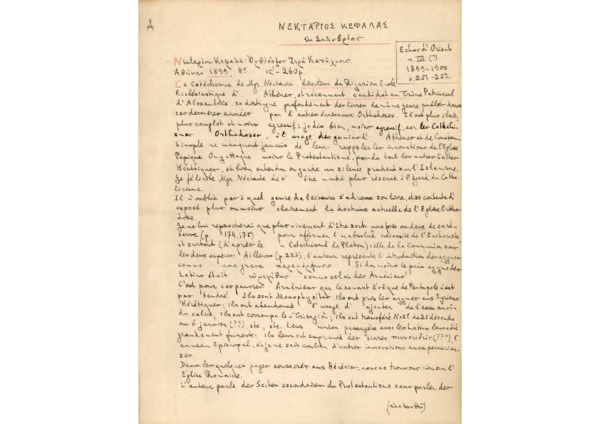 A
ΝΕΚΤΑΡΙΟΣ ΚΕΦΑΛΑΣ
ἐκ Σηλυβρίας
Echos d'Orient
τ. III (?)
1899-1900
σ. 251-252
Νεκταρίου Κεφαλᾶ: Ὀρθόδοξος Ἱερὰ Κατήχησις
Ἀθῆναι 1899. 8°.
Le Catéchisme de Mgr. Nectaire, directeur du Rizarion Ecole
Ecclésiastique d'Athènes, et récemment candidat au Trône Patriarcal
d'Alexandrie se distingue profondément des livres de même genre publiés dans
ces dernières années par d'autres écrivains Orthodoxes. Il est plus clair,
plus complet et moins agressif; je dis bien, moins agressif, car les Catéchi-
smes Orthodoxes à l'usage des gamins d'Athènes et de Constan-
tinople ne manquent jamais de leur rappeler les innovations de l'Eglise
Papique. On y attaque moins le Protestantisme, pas du tout les autres Sectes
Hérétiques, et bien entendu on garde un silence prudent sur l'Islamisme.
Je félicite Mgr. Nectaire de s'être montré plus réservé à l'égard du Catho-
licisme.
Il n'oublie pas à quel genre de lecteurs s'adresse son livre, et se contente d'
exposer plus ou moins clairement la doctrine actuelle de l'Eglise Ortho-
doxe.
Je ne lui reprocherai que plus vivement d'être sorti une fois ou deux de sa ré-
serve (p. 174, 178) pour affirmer l'absolue nécessité de l'Eucharistie
et surtout (d'après le Catéchisme de Platon) celle de la Communion sous
les deux espèces. Ailleurs (p. 222), l'auteur représente l'introduction des azymes
comme une grave παρανόησιν. Si du moins le pain azyme des
Latins était comme celui des Arméniens!
C'est que ces pauvres Arméniens que le savant Evêque de Pentapole n'est
pas tendre. Ils sont Monophysites, ils ont pris les azymes aux
Hérétiques; ils ont abandonné l'usage d'ajouter de l'eau au vin
du calice, ils ont corrompu le Trisagion, ils ont transféré Noël du 25 décembre
au 6 janvier (???), etc., etc. Leur union passagère avec les latins leur a été
grandement funeste: ils leur ont emprunté les (???), l'
anneau Episcopal, et je ne sais combien d'autres innovations
Dans les quelques pages consacrées aux Hérésies, nous ne trouvons rien sur l'
Eglise Romaine.
L'auteur parle des Sectes secondaires du Protestantisme sans parler des
(ἀκολουθεῖ)